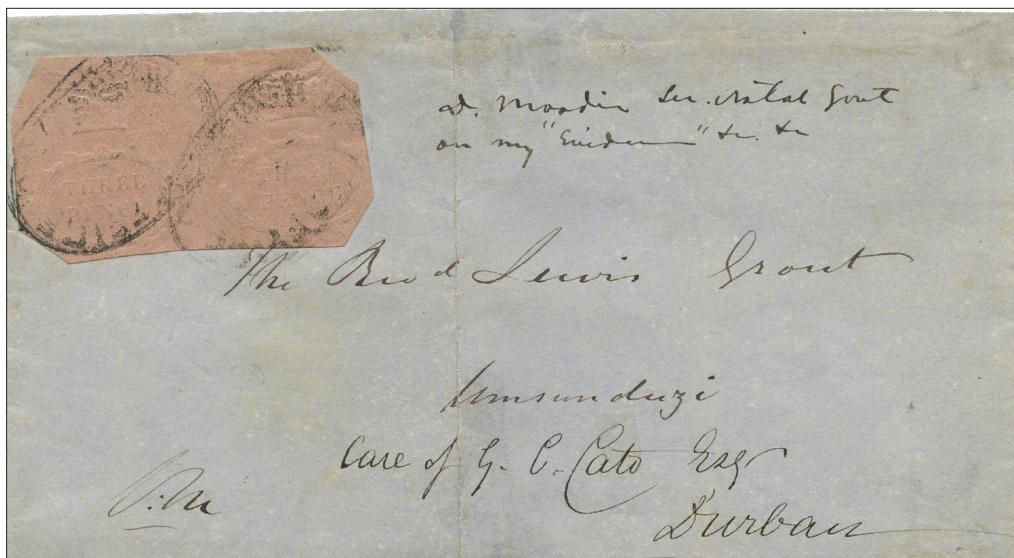 THREE
PENCE
D. Moodie Sec. Natal Govt
on my "Evidence" &c. &c
The Revd Lewis Grout
Umsunduzi
Care of G. C. Cato Esq
Durban